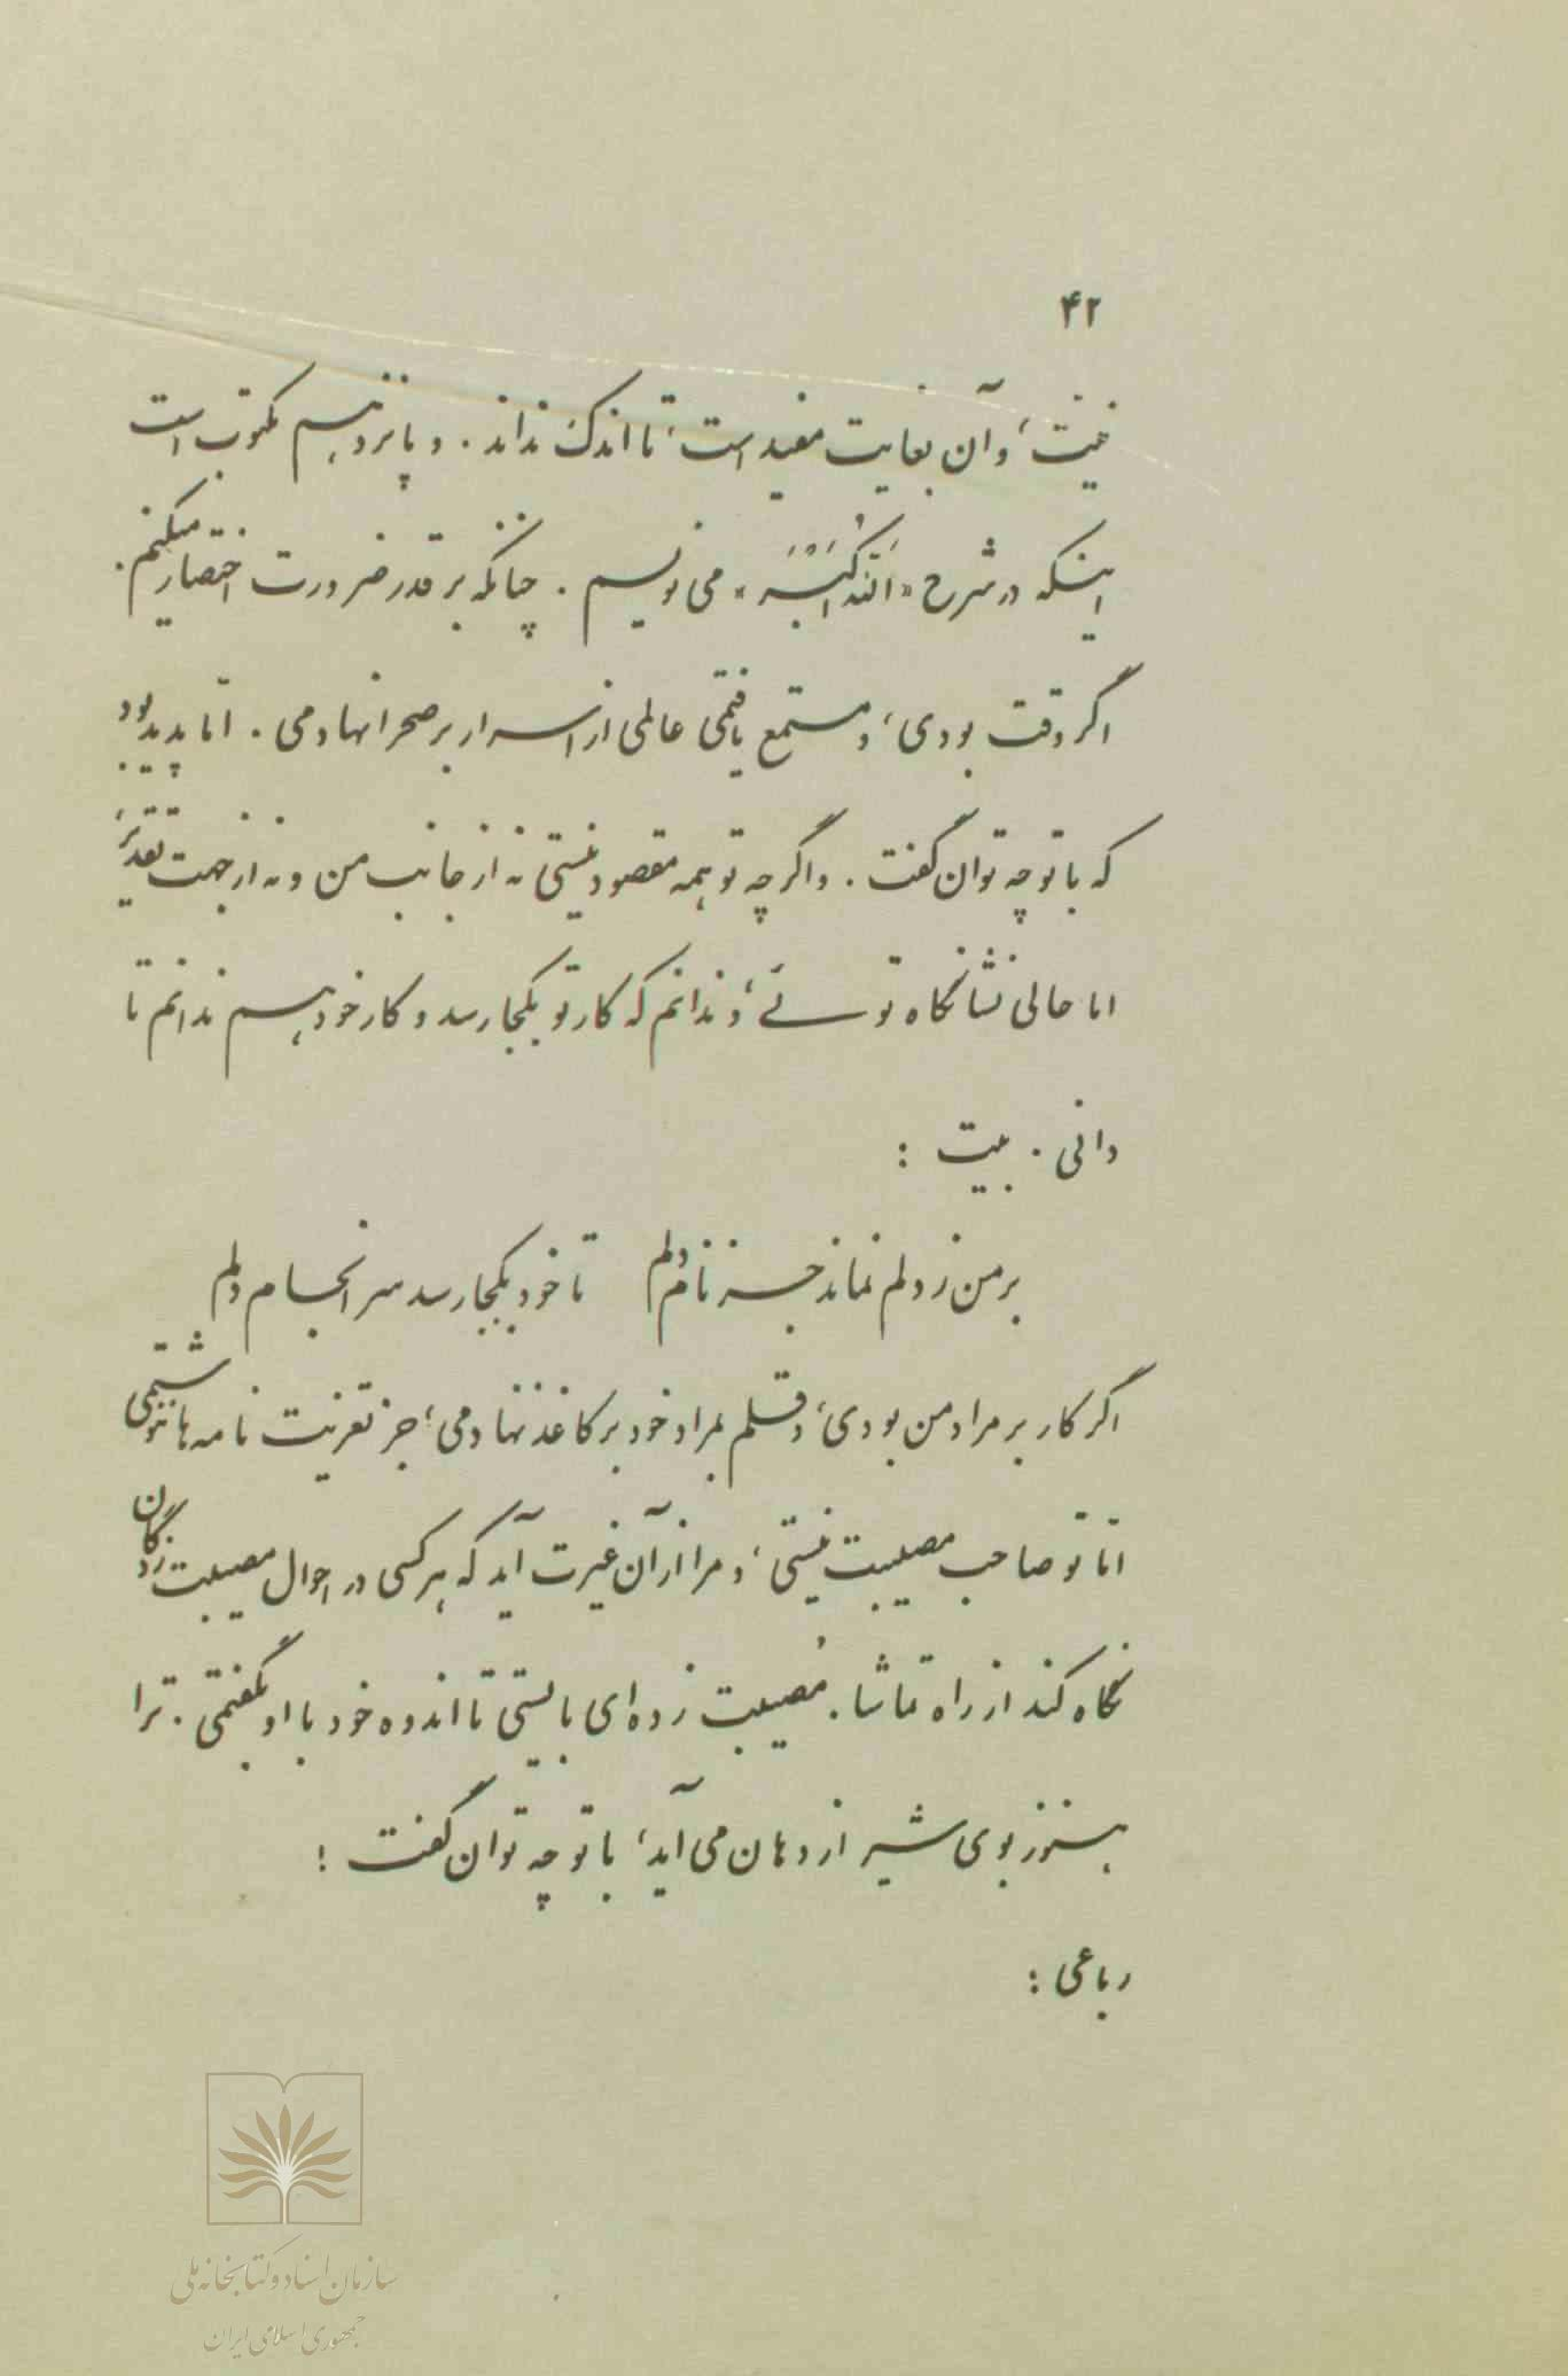 ۴۲
نیت، و آن بغایت مفید است، تا اندک نداند. و پانزدهم مکتوب است
اینکه در شرح «اَللّهُ اَکْبَر» می نویسم. چنانکه بر قدر ضرورت اختصار میکنم.
اگر وقت بودی، و مستمع یافتمی عالمی از اسرار بر صحرا نهادمی. امّا پدید بود
که با تو چه توان گفت. و اگر چه تو همه مقصود نیستی نه از جانب من و نه از جهت تقدیر،
اما حالی نشانگاه توئی، و ندانم که کار تو بکجا رسد و کار خود هم ندانم تا
دانی. بیت :
بر من ز دلم نماند جز نام دلم تا خود بکجا رسد سرانجام دلم
اگر کار بر مراد من بودی، و قلم بمراد خود بر کاغذ نهادمی، جز تعزیت نامه ها ننوشتمی
امّا تو صاحب مصیبت نیستی، و مرا از آن غیرت آید که هر کسی در احوال مصیبت زدگان
نگاه کند از راه تماشا. مُصیبت زده ای بایستی تا اندوه خود با او بگفتمی. ترا
هنوز بوی شیر از دهان می آید، با تو چه توان گفت !
رباعی :
سازمان اسناد و کتابخانه ملی
جمهوری اسلامی ایران